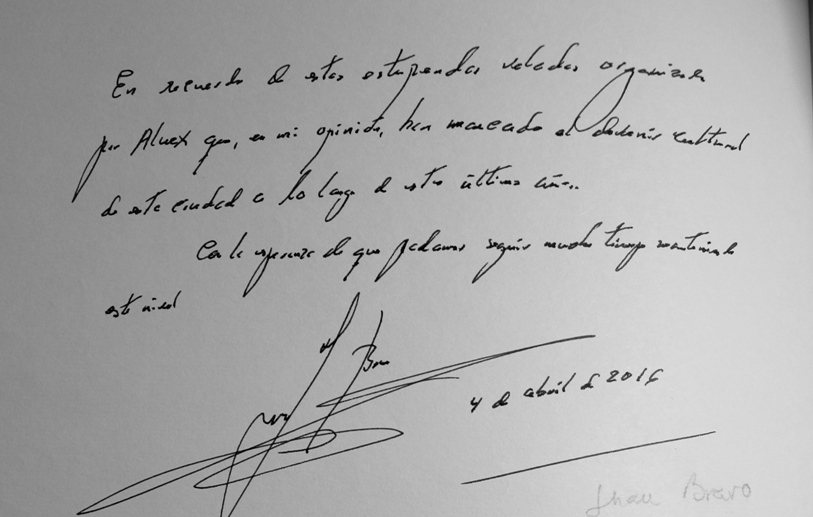 En recuerdo de estas estupendas veladas organizadas
por Aluex que, en mi opinión, han marcado el devenir cultural
de esta ciudad a lo largo de estos últimos años.
Con la esperanza de que podamos seguir mucho tiempo manteniendo
este nivel
Bravo
4 de abril de 2016
Juan Bravo